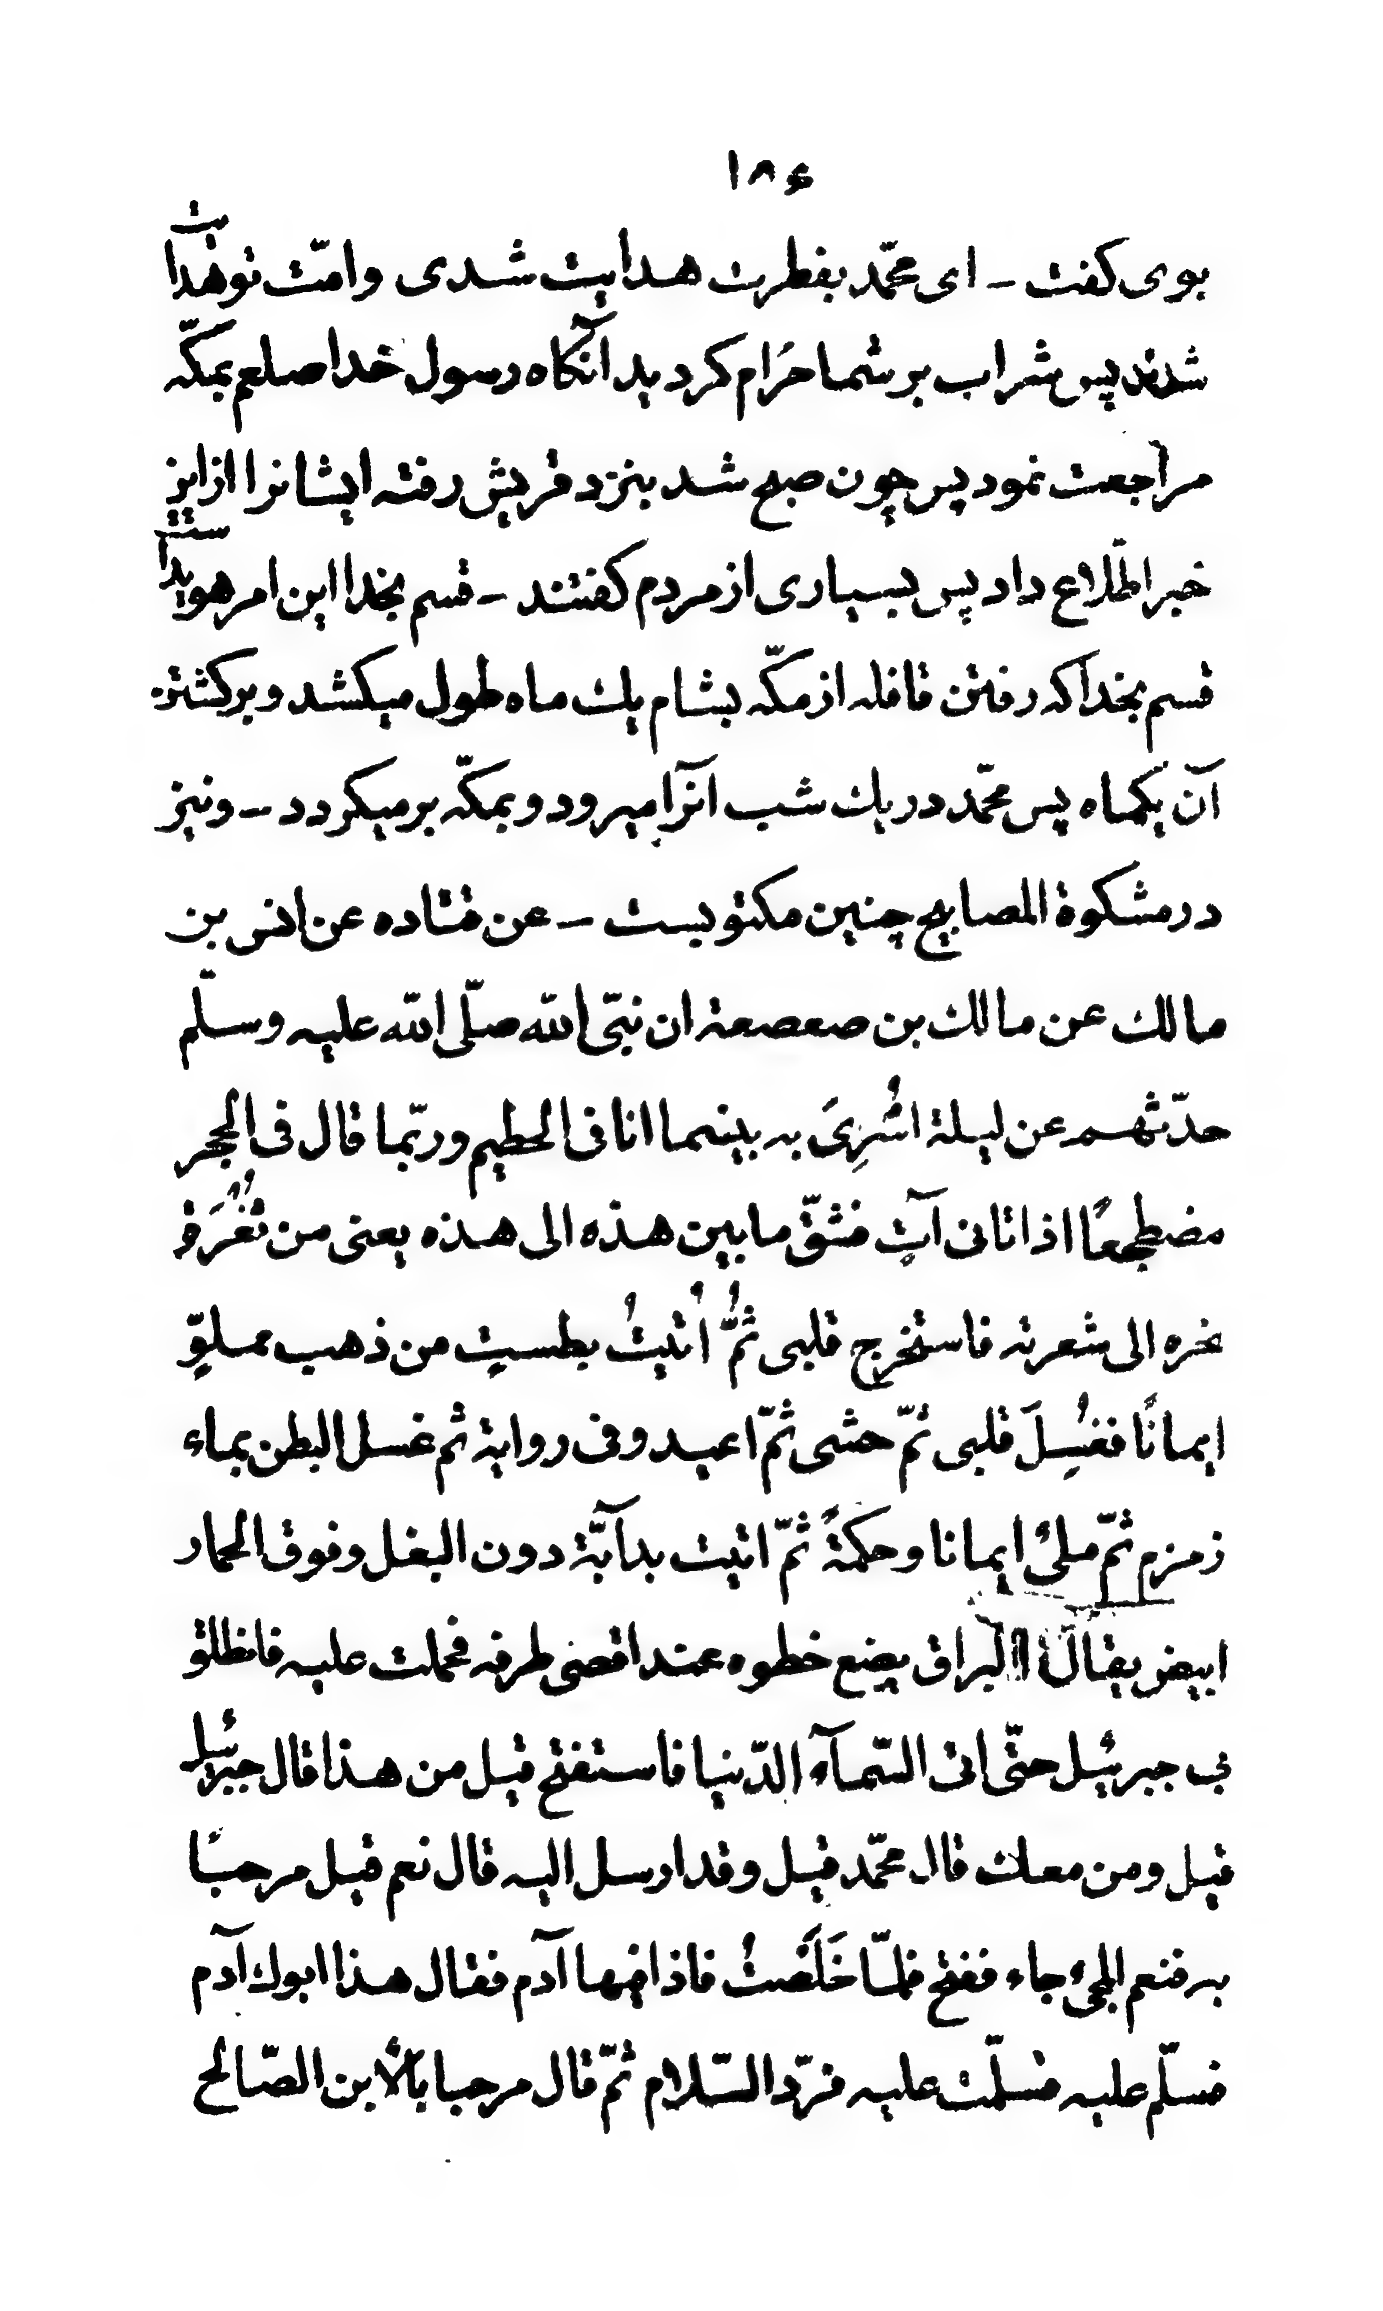 ۱۸۶
بوی کفت – ای محمّد بفطرت هدایت شدی وامّت توهدایت
شدند پس شراب بر شما حَرام کردید انکاه رسول خدا صلعم بمکّه
مراجعت نمود پس چون صبح شد بنزد قریش رفته ایشانرا ازاین
خبر اطّلاع داد پس بسیاری از مردم کفتند – قسم بخدا این امر هویداست
قسم بخدا که رفتن قافله از مکّه بشام یك ماه طول میکشد و برکشتن
آن یکماه پس محمّد در یك شب انرآ میرود و بمکّه بر میکردد – ونیز
در مشکوة المصابیح چنین مکتوبست – عن قتاده عن انس بن
مالك عن مالك بن صعصعة ان نبیّ الله صلّی الله علیه وسلّم
حدّثهم عن لیلة اسُرِیَ به بینما انا فی الحطیم وربّما قال فی الحجر
مضطجعًا اذ اتانی آتٍ فشقّ ما بین هذه الی هذه یعنی من ثُغُرَة
نحره الی شعرته فاستخرج قلبی ثُمُّ اُتیتُ بطستٍ من ذهب مملوٍّ
ایمانًا فغُسِلَ قلبی ثمّ حشی ثمّ اعید وفی روایة ثم غسل البطن بماء
زمزم ثمّ ملیُ ایمانا وحکمةً ثمّ اتیت بدآبّة دون البغل وفوق الحمار
ابیض یقال لهٗ البراق یضع خطوه عند اقصی طرفه فحملت علیه فانطلق
بی جبرئیل حتّی اتی السّمآء الدّنیا فاستفتح قیل من هذا قال جبرئیل
قیل ومن معك قال محمّد قیل وقد ارسل الیه قال نعم قیل مرحبًا
به فنعم المجیُ جاء ففتح فلمّا خَلَصْتُ فاذا فیها آدم فقال هذا ابوك آدم
فسلّم علیه فسلّمت علیه فردّ السّلام ثمّ قال مرحبا بالأبن الصّالح